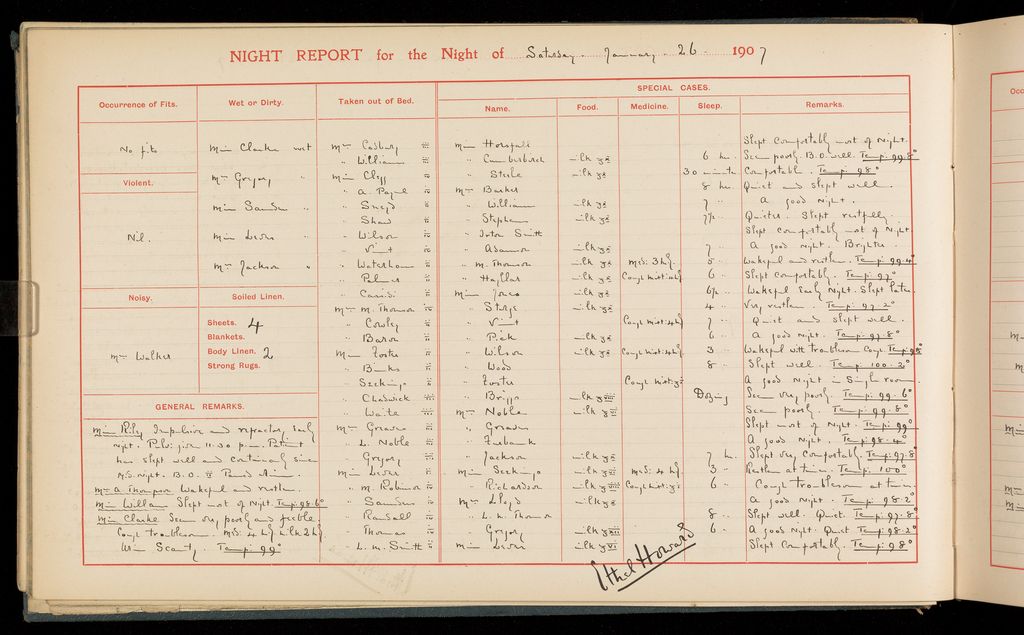 NIGHT REPORT for the Night of Saturday January 26 1907
Occurrence of Fits.
Wet or Dirty.
Taken out of Bed.
SPECIAL CASES.
Name.
Food.
Medicine.
Sleep.
Remarks.
No fits
Violent.
Nil.
Noisy.
Mrs Walker
Miss Clarke wet
Mrs Gregory "
Miss Sanders "
Miss Lever "
Mrs Jackson "
Soiled Linen.
Sheets. 4
Blankets.
Body Linen. 2
Strong Rugs.
Mrs Cadbury
" William
Miss Clegg
" A. Payne
" Sneyd
" Shaw
" Wilson
" Vint
" Waterhouse
" Palmer
" Cassidi
Mrs M. Thomson
" Cowley
" Baron
Miss Foster
" Banks
" Secking
" Chadwick
" Waite
Mrs Greaves
" L. Noble
" Gregory
Miss Lever
" M. Robinson
" Sanders
" Randall
" Thomas
" L. M. Smith
Miss Horsfall Slept comfortably most of night.
" Cumberbirch milk 6 hrs. Seem poorly. B.O. well. Temp: 99.8°
" Steele milk 30 minutes Comfortable. Temp: 98°
Mrs Barker 8 hrs. Quiet and slept well.
" William milk 7 " A good night.
" Stephens milk 7½ " Quieter. Slept restfully.
" Irton Smith Slept comfortably most of night.
" Adamson milk 7 " A good night. Brighter.
" M. Thomson milk Med: 5 " Wakeful and restless. Temp: 99.4°
" Hallas milk Cough mist: 6 " Slept comfortably. Temp: 97°
Miss Jones milk 6½ " Wakeful early night. Slept later.
" Sturge milk 4 " Very restless. Temp: 97.2°
" Vint Cough mist: 7 " Quiet and slept well.
" Pick milk 6 " A good night. Temp: 97.8°
" Wilson milk Cough mist: 3 " Wakeful with troublesome cough.
" Wood 8 " Slept well. Temp: 100.2°
" Foster Cough mist: A good night in single room.
" Briggs milk Dozing Seem very poorly. Temp: 99.6°
Mrs Noble milk Seem poorly. Temp: 99.8°
" Greaves Slept most of night. Temp: 99°
" Firbank A good night. Temp: 98.4°
" Jackson milk 7 hrs. Slept very comfortably. Temp: 97.8
Miss Secking milk Med: 3 " Restless at times. Temp: 100°
" Richardson milk Cough mist: 6 " Cough troublesome at times.
Mrs Lloyd milk A good night. Temp: 98.2°
" L. M. Thomson 8 " Slept well. Quiet. Temp: 97.8°
" Gregory milk 6 " A good night. Quiet. Temp: 98.2°
Miss Lever milk Slept comfortably. Temp: 98°
GENERAL REMARKS.
Miss Riley Impulsive and refractory early
night. given 11.30 p.m. Patient
has slept well and continuously since
M.S. night. B.O.
Mrs A Thompson Wakeful and restless.
Miss William Slept most of night. Temp: 98.6°
Miss Clarke Seem very poorly and feeble.
Cough troublesome. Med:
Urine Scanty. Temp: 99°
Ethel Howard